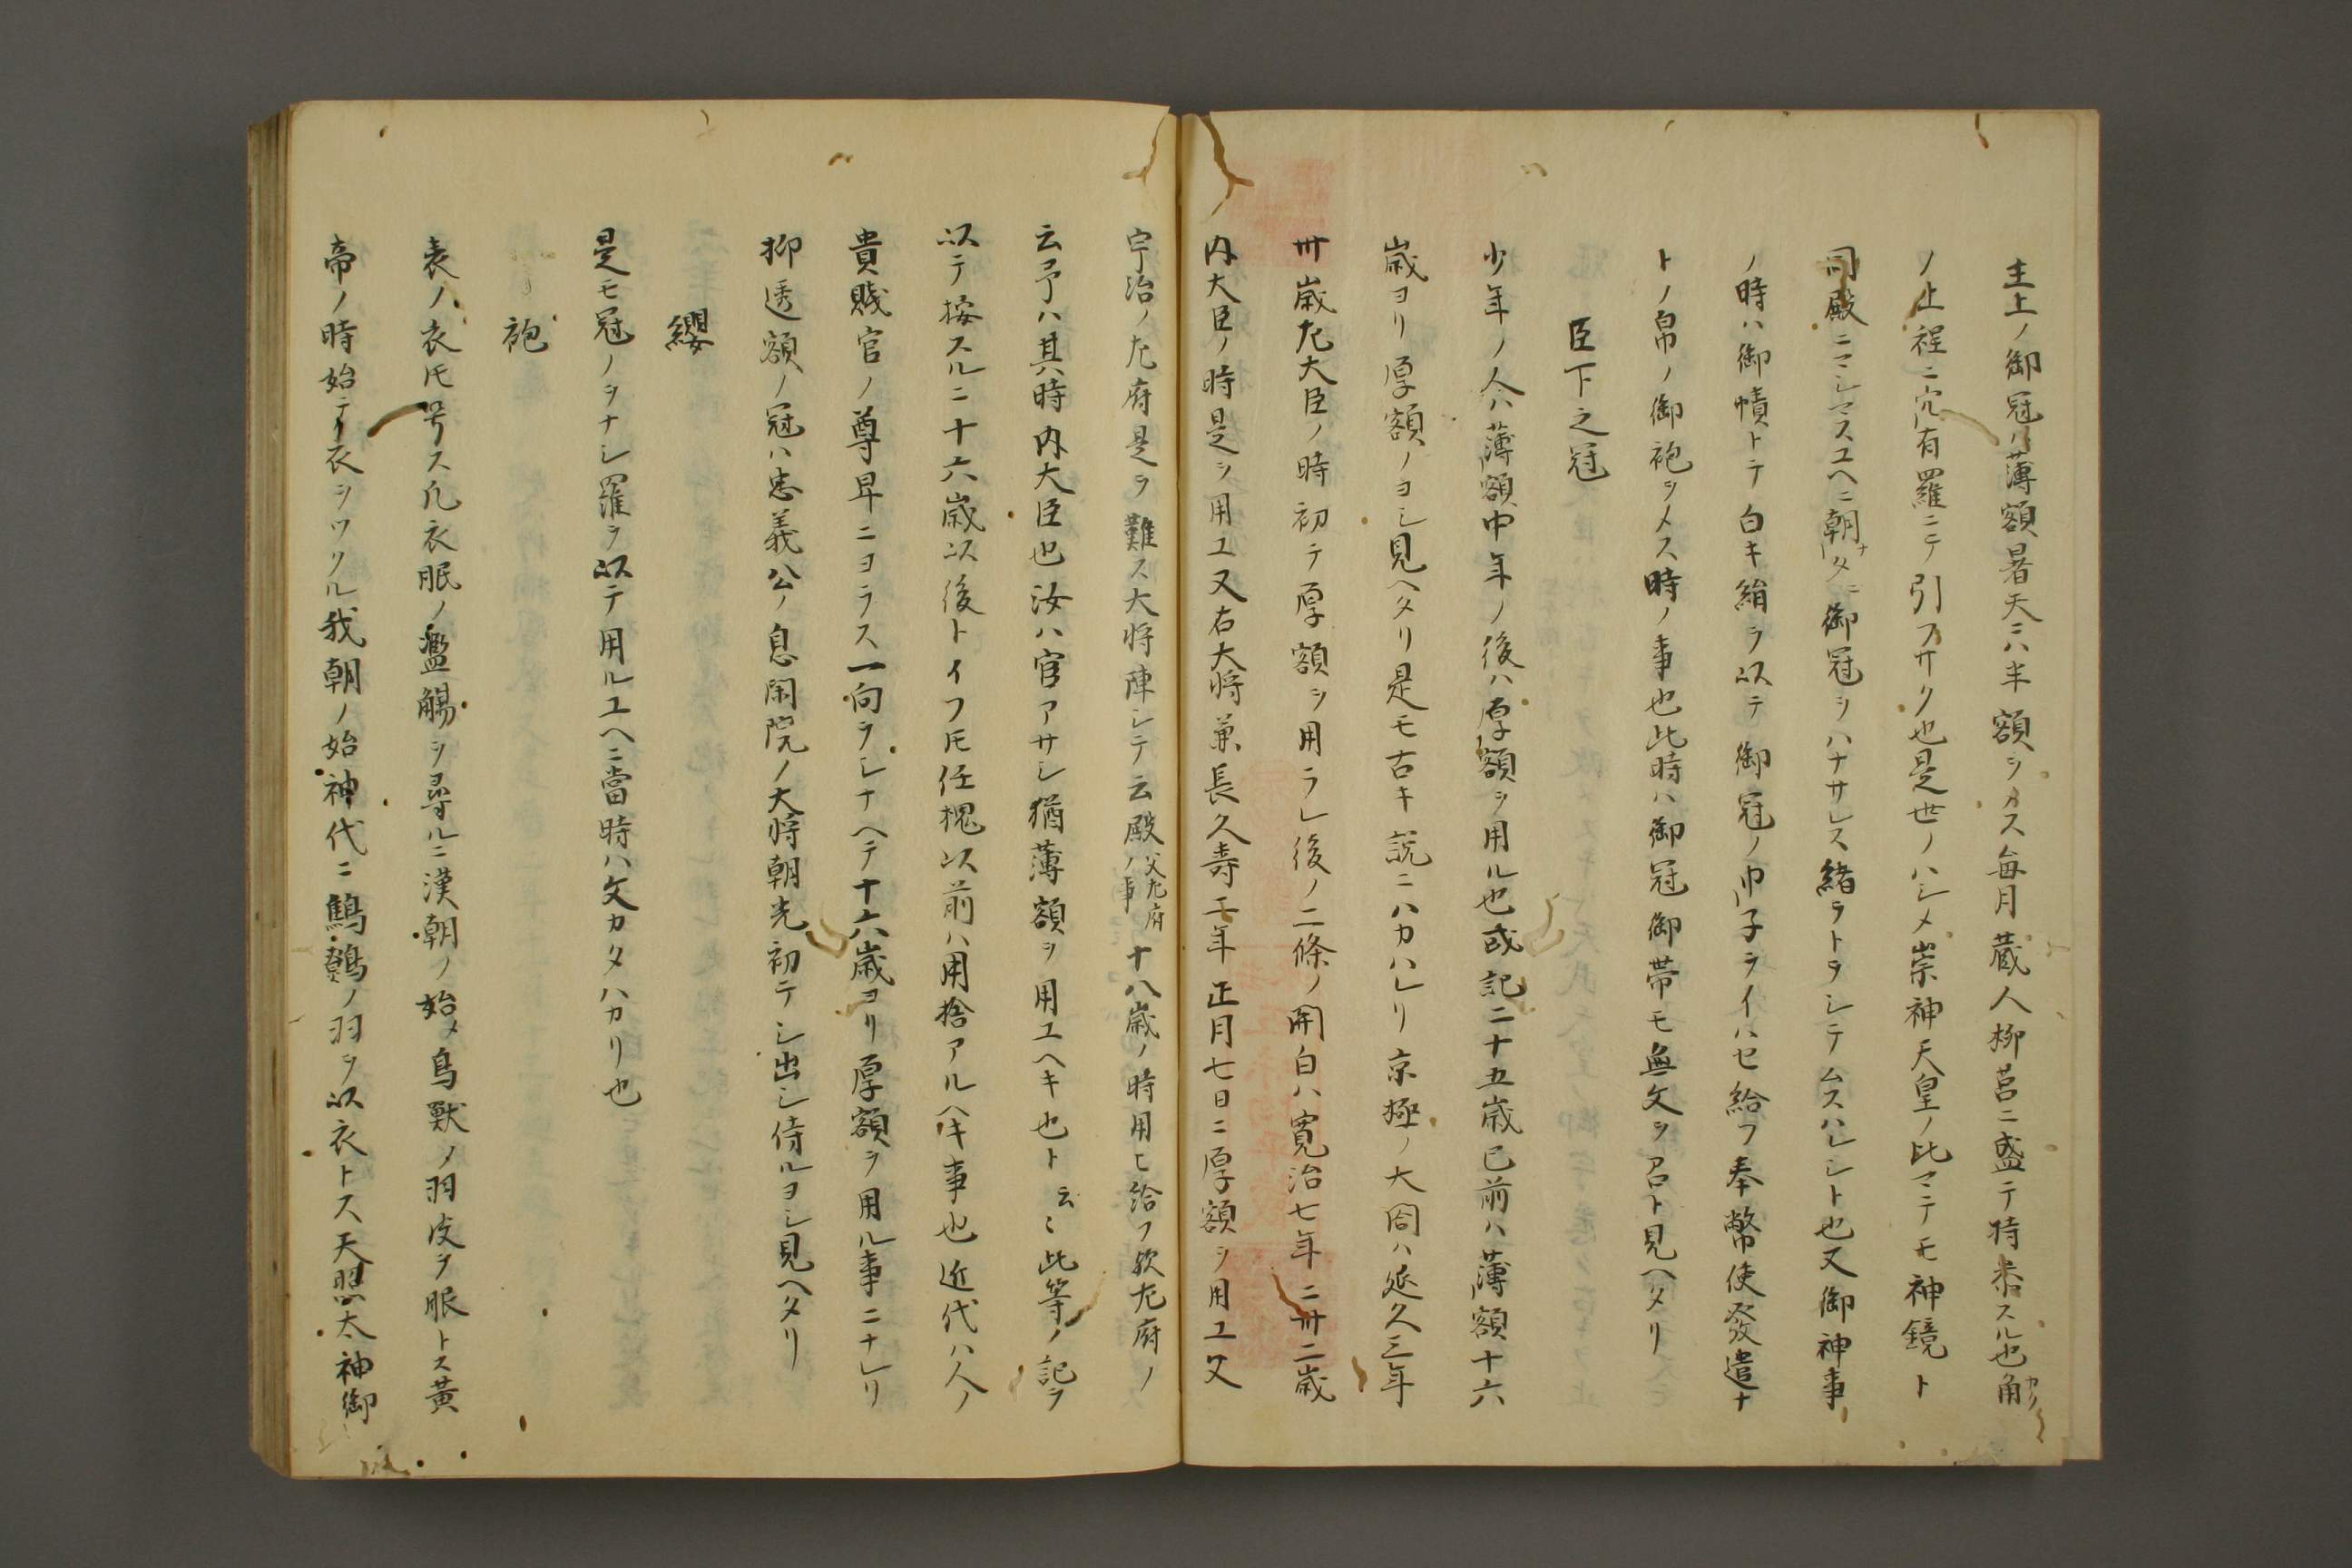 主上ノ御冠ハ薄額暑天ニハ半額ヲメス毎月蔵人柳筥ニ盛テ持参スル也角カク
ノ上程ニ穴有羅ニテ引フサク也是世ノハシメ崇神天皇ノ比マテモ神鏡ト
同殿ニマシマスユヘニ朝ナタニ御冠ヲハナサレス緒ヲトヲシテムスハレシト也又御神事
ノ時ハ御幘トテ白キ絹ヲ以テ御冠ノ巾子ヲイハセ給フ奉幣使發遣ナ
トノ帛ノ御袍ヲメス時ノ事也此時ハ御冠御帯モ無文ヲ召ト見ヘタリ
臣下之冠
少年ノ人ハ薄額中年ノ後ハ厚額ヲ用ル也或記二十五歳已前ハ薄額十六
歳ヨリ厚額ノヨシ見ヘタリ是モ古キ説ニハカハレリ京極ノ大閤ハ延久三年
卅歳左大臣ノ時初テ厚額ヲ用ラレ後ノ二條ノ関白ハ寛治七年ニ卅二歳
内大臣ノ時是ヲ用ユ又右大将兼長久寿二年正月七日ニ厚額ヲ用ユ又
宇治ノ左府是ヲ難ス大将陣シテ云殿父左府ノ事十八歳ノ時用ヒ給フ欤左府ノ
云予ハ其時内大臣也汝ハ官アサシ猶薄額ヲ用ユヘキ也ト云〻此等ノ記ヲ
以テ按スルニ十六歳以後トイフ圧任槐以前ハ用捨アルヘキ事也近代ハ人ノ
貴賎官ノ尊卑ニヨラス一向ヲシナヘテ十六歳ヨリ厚額ヲ用ル事ニナレリ
抑透額ノ冠ハ忠義公ノ息閑院ノ大将朝光初テシ出シ侍ルヨシ見ヘタリ
纓
是モ冠ノヲナシ羅ヲ以テ用ルユヘニ當時ハ文カタハカリ也
袍
表ノ衣圧号ス凡衣服ノ濫觴ヲ尋ルニ漢朝ノ始メ鳥獣ノ羽皮ヲ服トス黄
帝ノ時始テ衣ヲツクル我朝ノ始神代ニ鷦鷯ノ羽ヲ以衣トス天照太神御